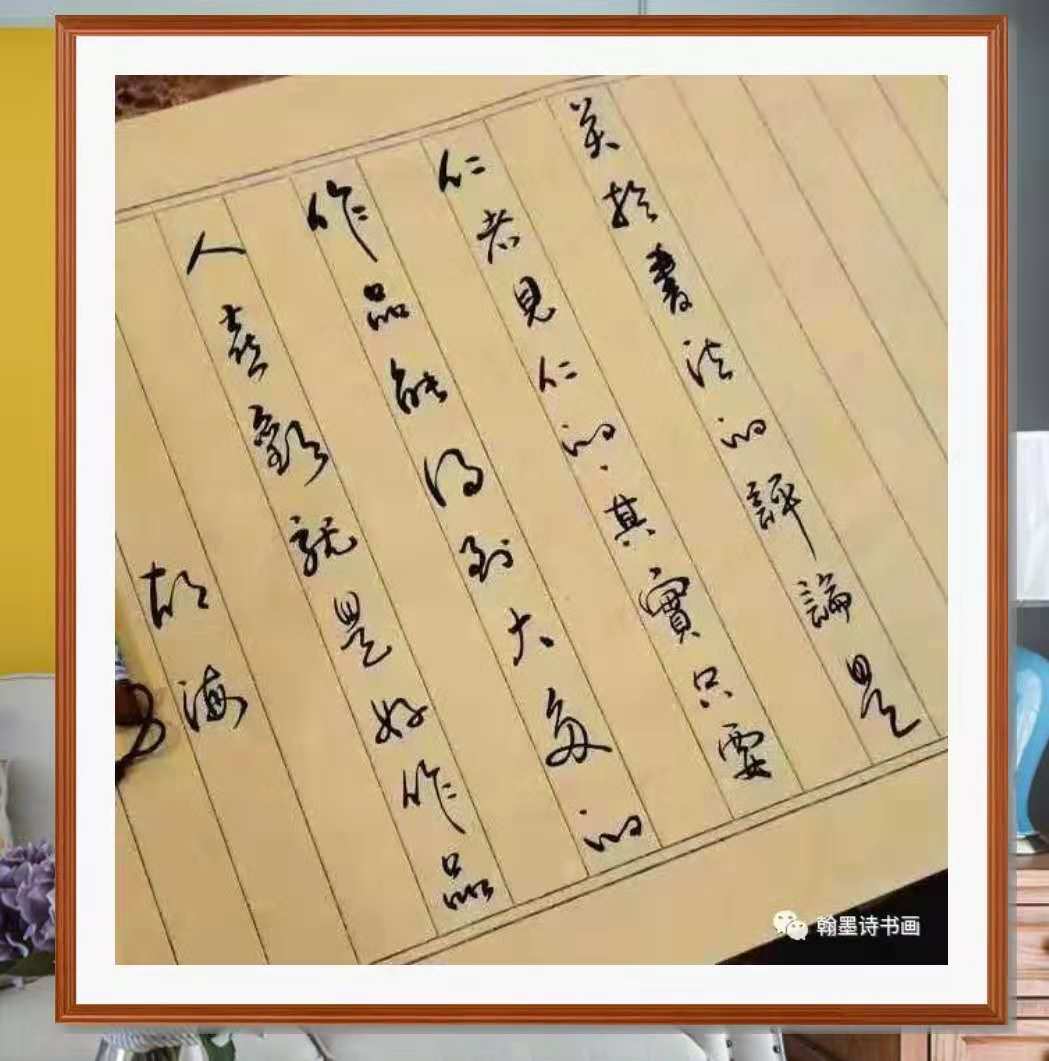 关於書法的評論是
仁者見仁的.其實只要
作品能得到大多的
人喜歡就是好作品
胡海
翰墨诗书画